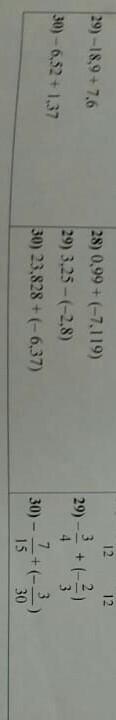 29) –18,9 + 7,6
30) – 6,52 + 1,37
28) 0,99 + (–7,119)
29) 3,25 – (–2,8)
30) 23,828 + (– 6,37)
12 12
29) –3/4 + (–2/3)
30) –7/15 + (–3/30)